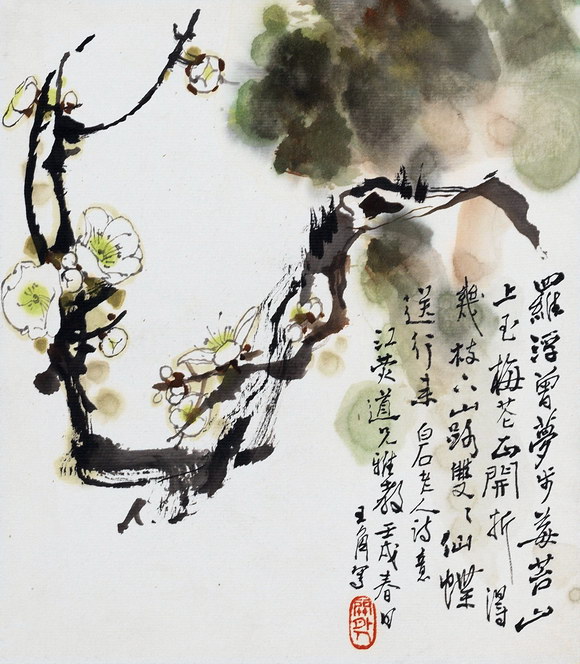 羅浮曾夢步莓苔山
上玉梅花正開折得
幾枝下山路雙々仙蝶
送行来 白石老人詩意
江荧道兄雅教 壬戌春日
王角寫